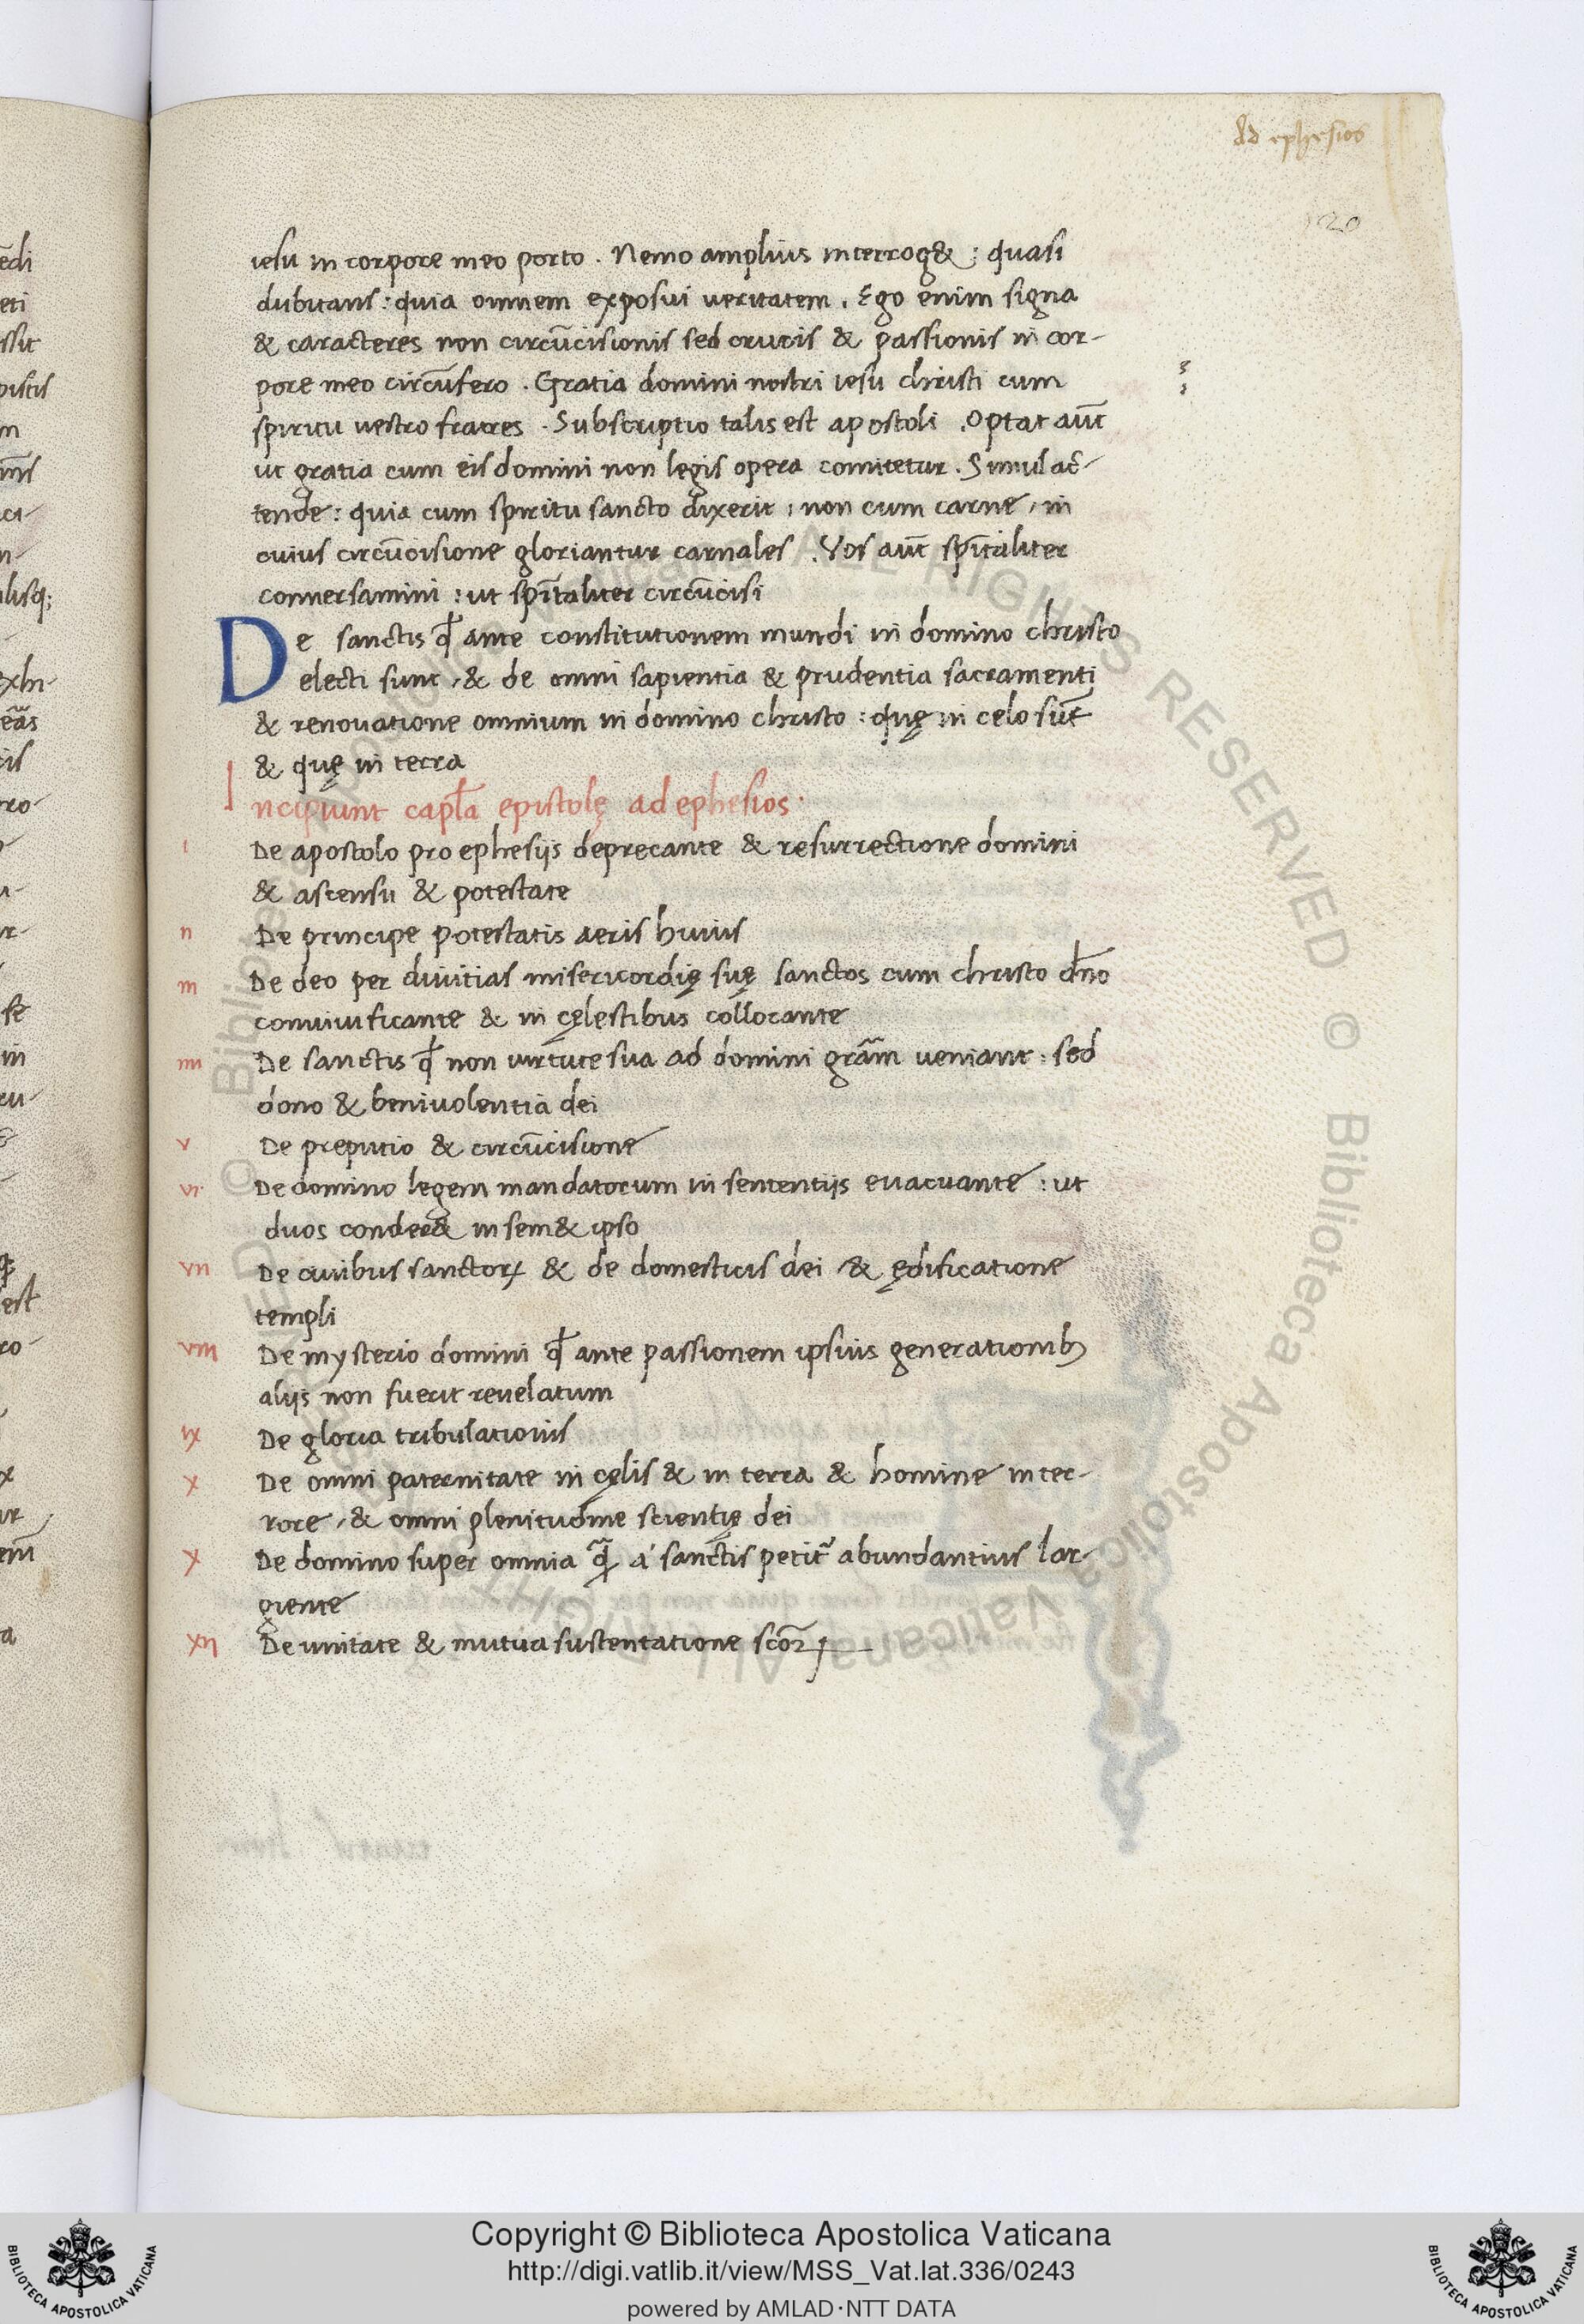 Ad ephesios
120
iesu in corpore meo porto . Nemo amplius interrog& : quasi
dubitans : quia omnem exposui ueritatem . Ego enim signa
& caracteres non circūcisionis sed crucis & passionis in cor-
pore meo circūfero . Gratia domini nostri iesu christi cum
spiritu uestro fratres . Subscriptio talis est apostoli . Optat aūt
ut gratia cum eis domini non legis opera comitetur . Simul ac-
tende : quia cum spiritu sancto dixerit : non cum carne , in
cuius circūcisione gloriantur carnales . Vos aūt sp̄italiter
conuersamini : ut sp̄italiter circūcisi
De sanctis qđ ante constitutionem mundi in domino christo
electi sunt , & de omni sapientia & prudentia sacramenti
& renouatione omnium in domino christo : quę in celo sūt
& quę in terra
Incipiunt capl̄a epistolę ad ephesios ·
i De apostolo pro ephesijs deprecante & resurrectione domini
& ascensu & potestate
ii De principe potestatis aeris huius
iii De deo per diuitias misericordię suę sanctos cum christo dn̄o
conuiuificante & in cęlestibus collocante
iiii De sanctis qđ non uirtute sua ad domini grām ueniant : sed
dono & beniuolentia dei
v De preputio & circūcisione
vi De domino legem mandatorum in sententijs euacuante : ut
duos conder& in sem& ipso
vii De ciuibus sanctoꝝ & de domesticis dei , & ędificatione
templi
viii De mysterio domini qđ ante passionem ipsius generationibꝫ
alijs non fuerit reuelatum
ix De gloria tribulationis
x De omni paternitate in cęlis & in terra & homine inter-
rore , & omni plenitudine scientię dei
x De domino super omnia q̄ a sanctis petit᷑ abundantius lar-
giente
xii De unitate & mutua sustentatione sc̄oꝝ
Copyright © Biblioteca Apostolica Vaticana
http://digi.vatlib.it/view/MSS_Vat.lat.336/0243
powered by AMLAD·NTT DATA